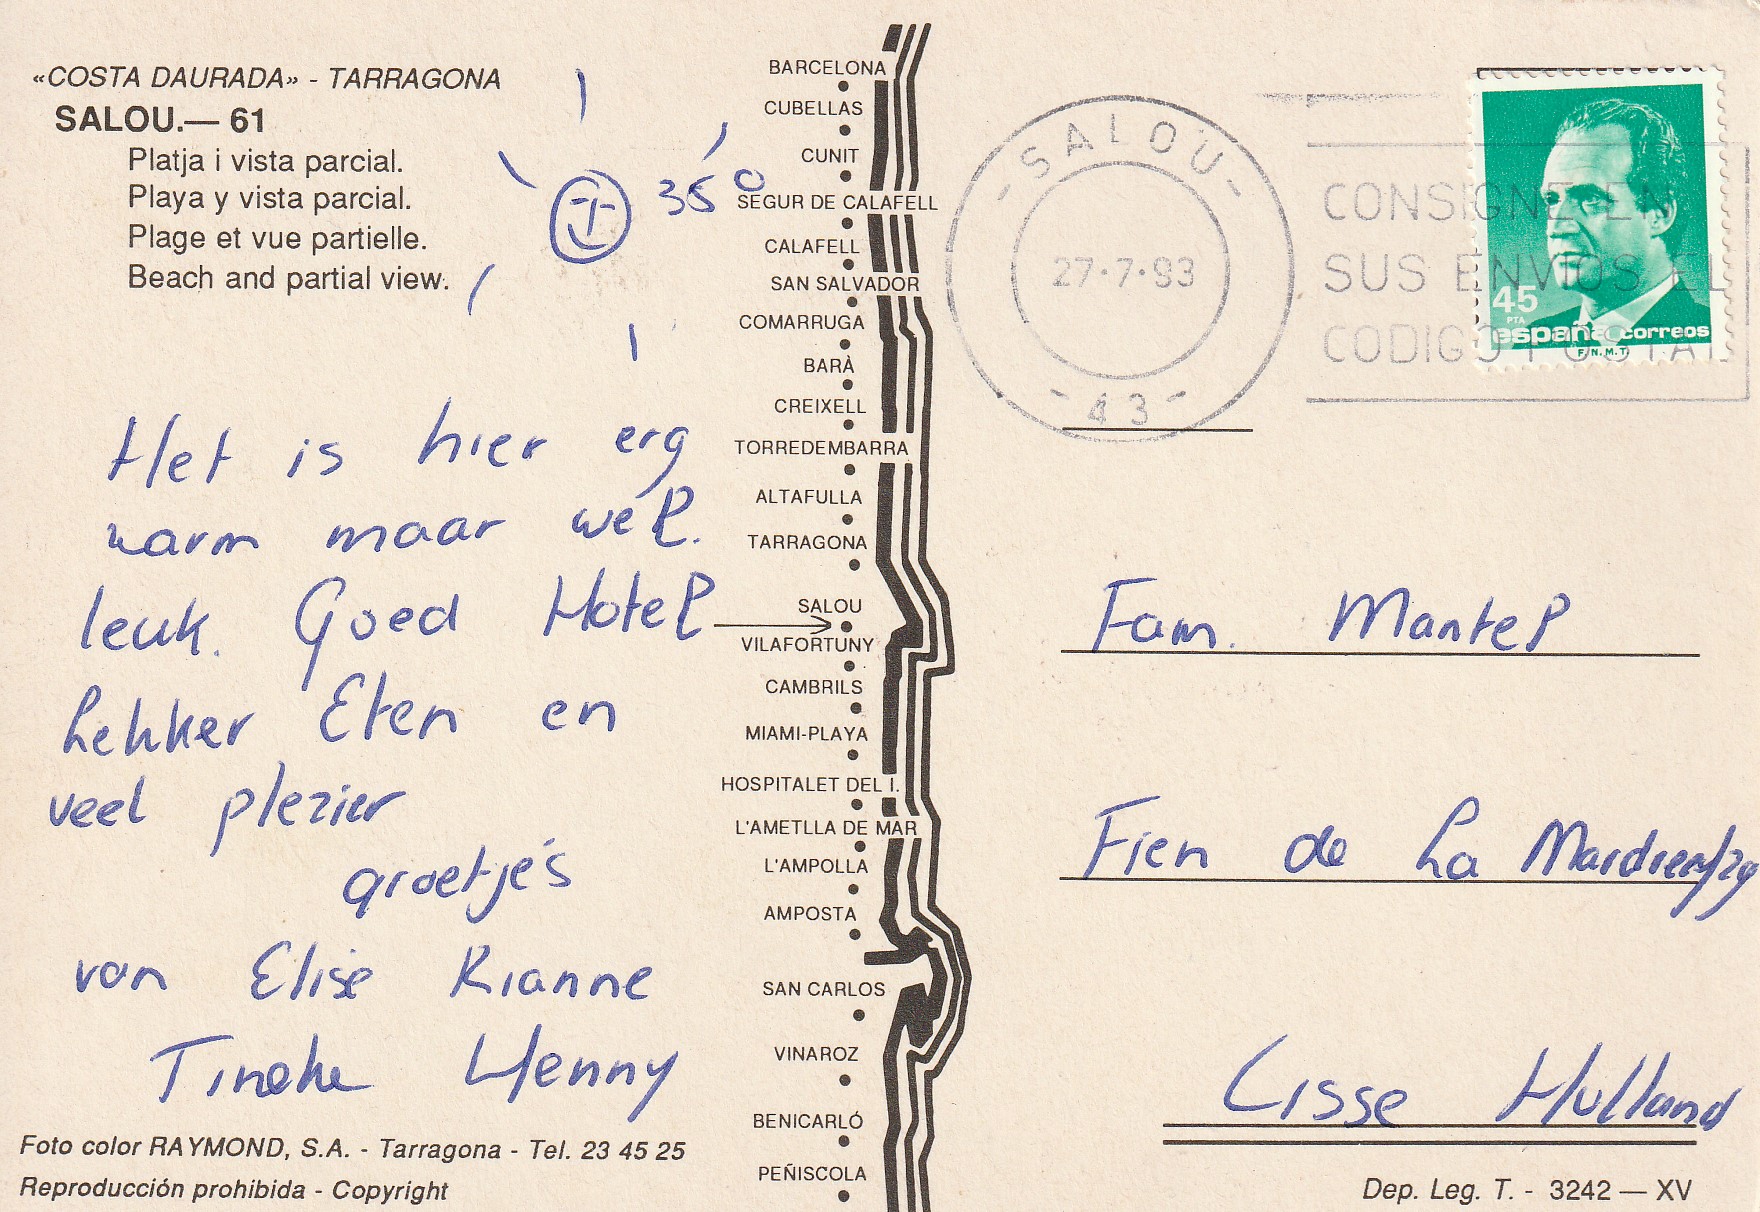 «COSTA DAURADA» - TARRAGONA
SALOU.— 61
Platja i vista parcial.
Playa y vista parcial.
Plage et vue partielle.
Beach and partial view.
35°
Het is hier erg
warm maar wel.
leuk. Goed Hotel
Lekker Eten en
veel plezier
groetje's
van Elise Rianne
Tineke Henny
Foto color RAYMOND, S.A. - Tarragona - Tel. 23 45 25
Reproducción prohibida - Copyright
BARCELONA
CUBELLAS
CUNIT
SEGUR DE CALAFELL
CALAFELL
SAN SALVADOR
COMARRUGA
BARÀ
CREIXELL
TORREDEMBARRA
ALTAFULLA
TARRAGONA
SALOU
VILAFORTUNY
CAMBRILS
MIAMI-PLAYA
HOSPITALET DEL I.
L'AMETLLA DE MAR
L'AMPOLLA
AMPOSTA
SAN CARLOS
VINAROZ
BENICARLÓ
PEÑISCOLA
- SALOU -
27·7·93
- 43 -
CONSIGNE EN
SUS ENVIOS EL
CODIGO POSTAL
45
PTA
españa correos
F.N.M.T.
Fam. Mantel
Fien de La
Lisse Holland
Dep. Leg. T. - 3242 — XV